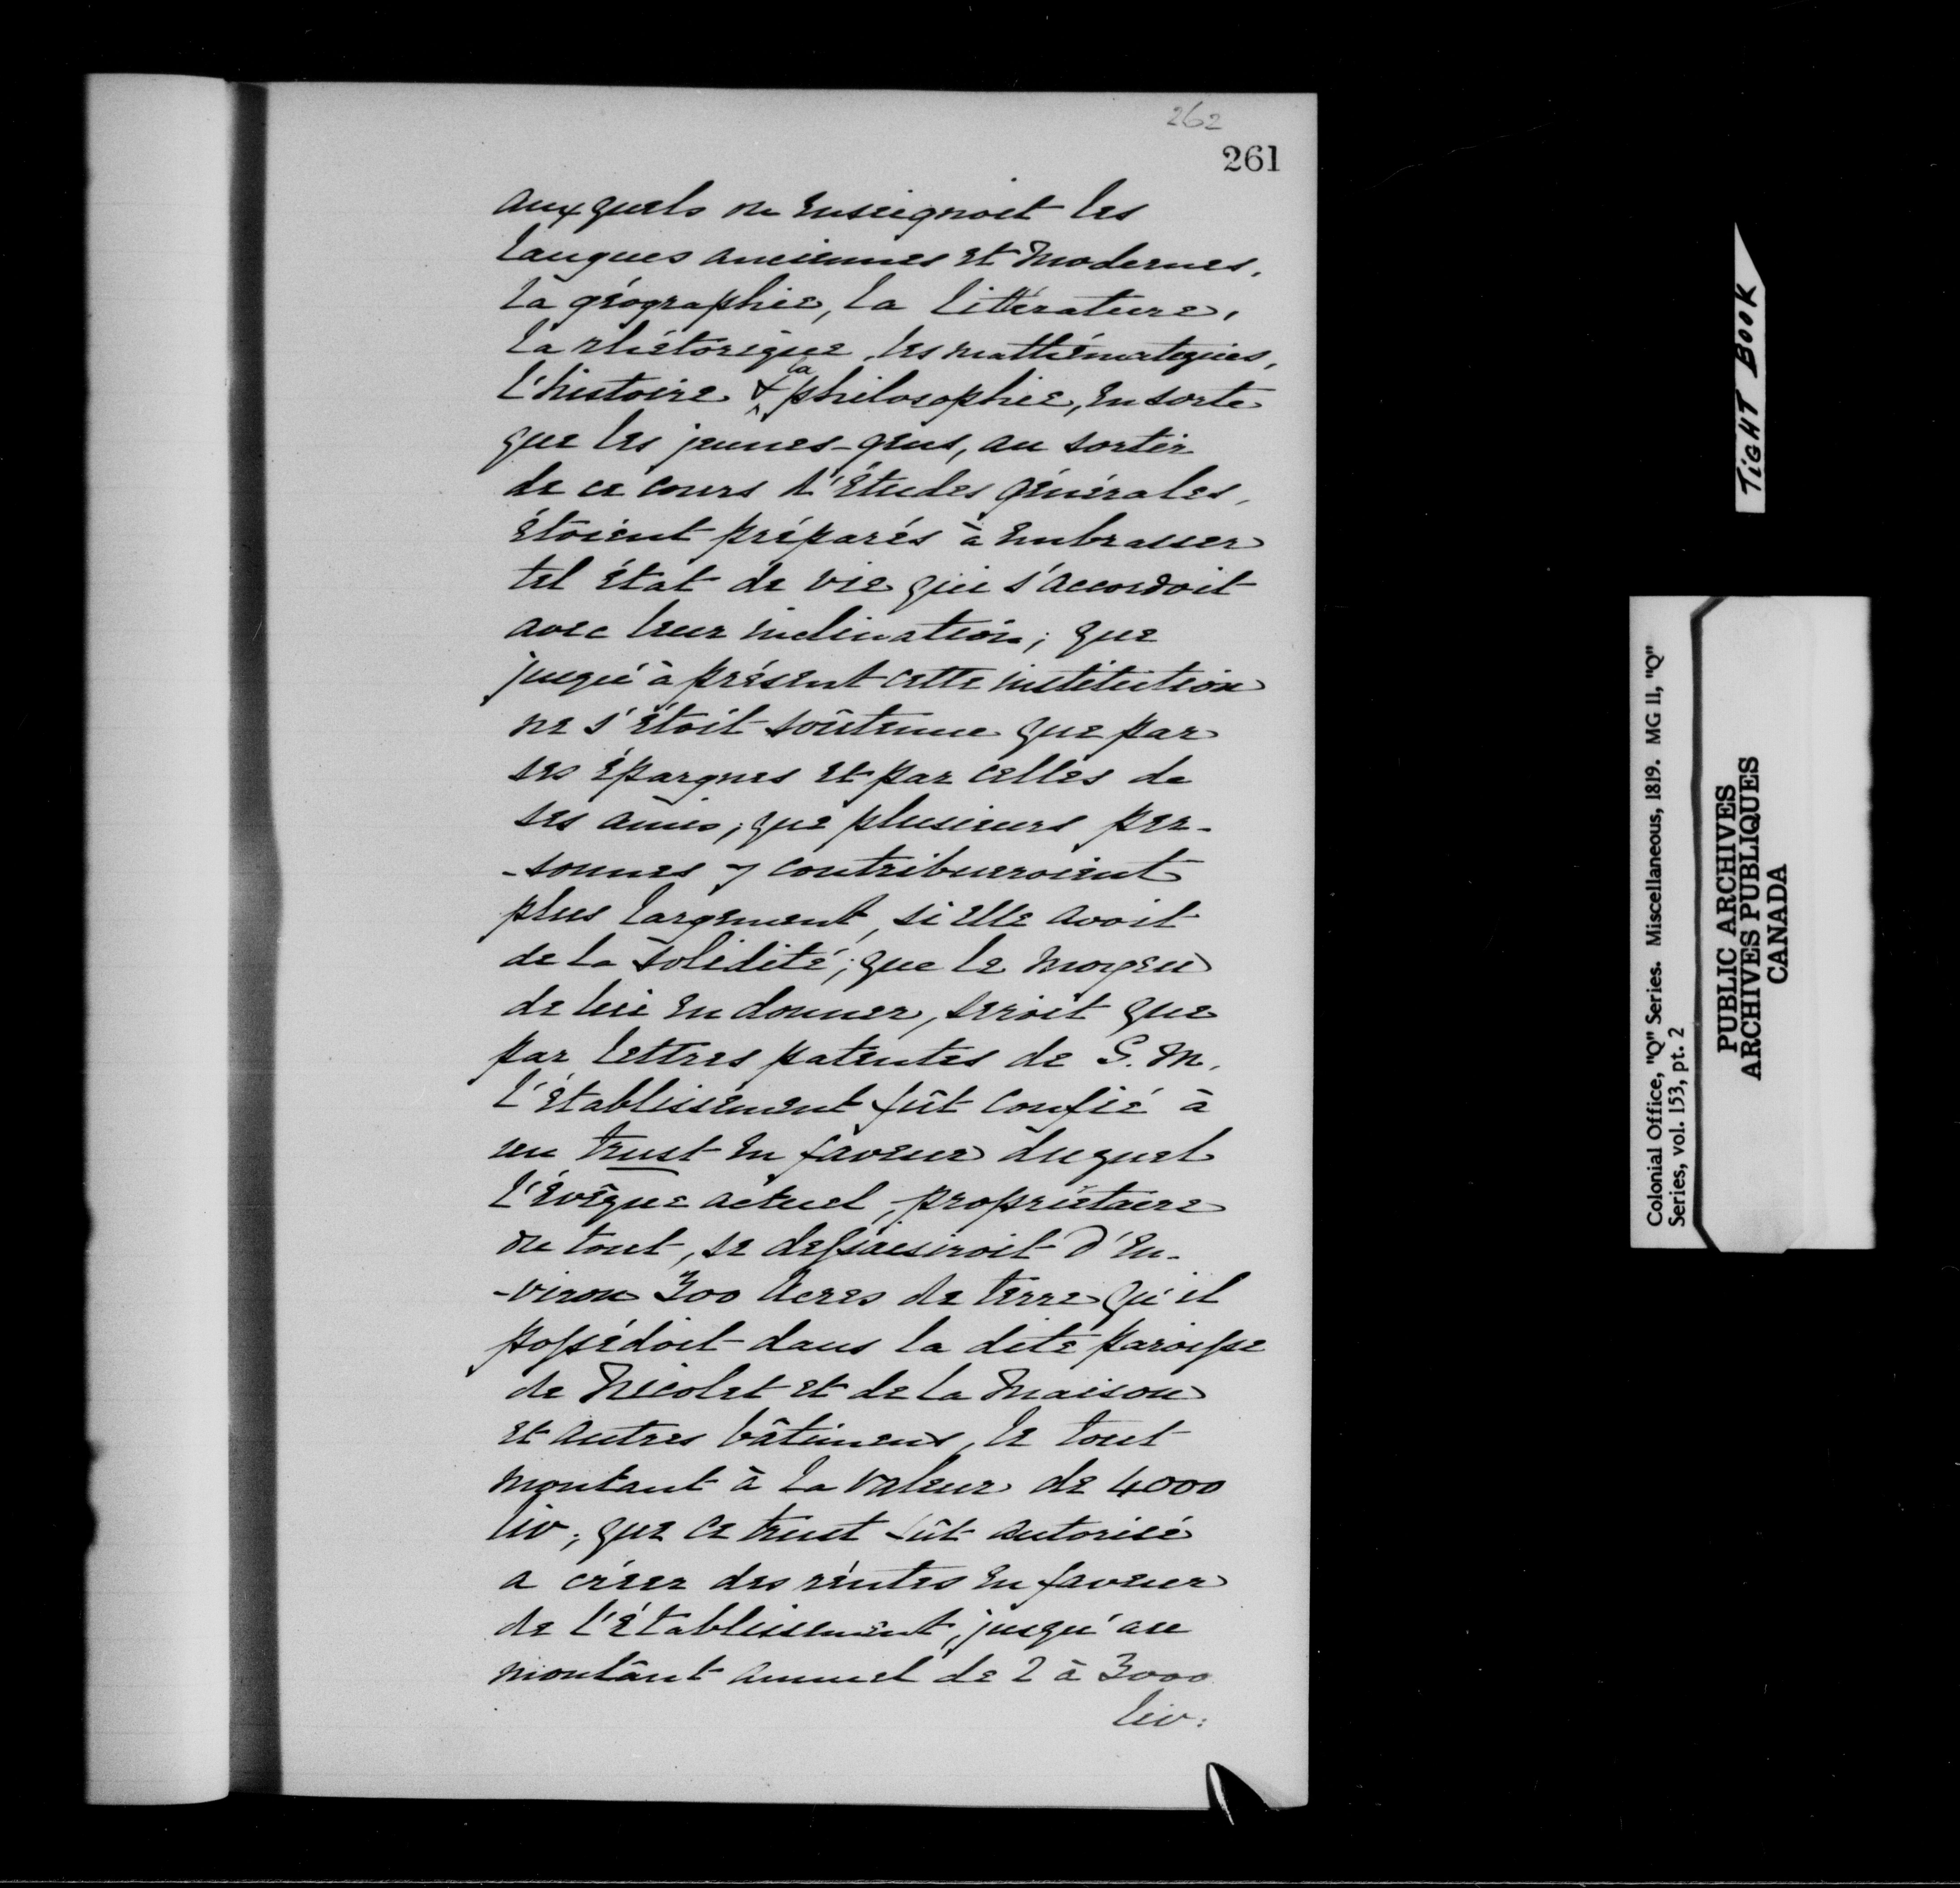 262
261
auxquels on enseignoit les
langues anciennes et modernes,
la géographie, la littérature,
la rhétorique, les mathématiques,
l'histoire & la philosophie, en sorte
que les jeunes-gens, au sortir
de ce cours d'études générales,
étoient préparés à embrasser
tel état de vie qui s'accordoit
avec leur inclination; que
jusqu'à présent cette institution
ne s'étoit soûtenue que par
ses épargnes et par celles de
ses amis; que plusieurs per-
-sonnes y contribueroient
plus largement, si elle avoit
de la solidité; que le moyen
de lui en donner, seroit que
par lettres patentes de S. M.
l'établissement fût confié à
un trust en faveur duquel
l'évêque actuel, propriétaire
du tout, se dessaisiroit d'en-
-viron 300 acres de terre qu'il
possédoit dans la dite paroisse
de Nicolet et de la maison
et autres bâtimens, le tout
montant à la valeur de 4000
liv; que ce trust fût autorisé
a créer des rentes en faveur
de l'établissement, jusqu'au
montant annuel de 2 à 3000
liv:
TiGHT BOOK
Colonial Office, "Q" Series. Miscellaneous, 1819. MG 11, "Q"
Series, vol. 153, pt. 2
PUBLIC ARCHIVES
ARCHIVES PUBLIQUES
CANADA